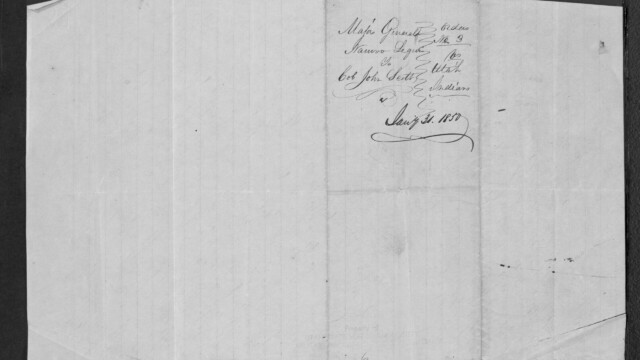 Major General
Nauvoo Legion
To
Col John Scott
Orders
No 3
for
Utah
Indians
Jany 31. 1850